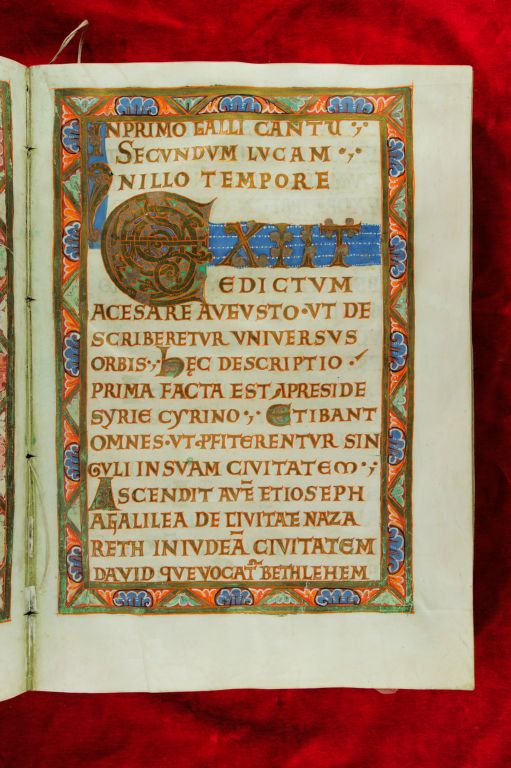 INPRIMO GALLI CANTU
SECUNDUM LUCAM
IN ILLO TEMPORE
EXIIT
EDICTUM
A CESARE AUGUSTO · UT DE
SCRIBERETUR UNIVERSUS
ORBIS · hĘC DESCRIPTIO ·
PRIMA FACTA EST A PRESIDE
SYRIE CYRINO · ET IBANT
OMNES · UT ꝓFITERENTUR SIN
GULI IN SUAM CIVITATEM ·
ASCENDIT AUTĒ ET IOSEPH
A GALILEA DE CIVITATE NAZA
RETH IN IUDEĀ CIVITATEM
DAVID QUE VOCAT᷑ BETHLEHEM